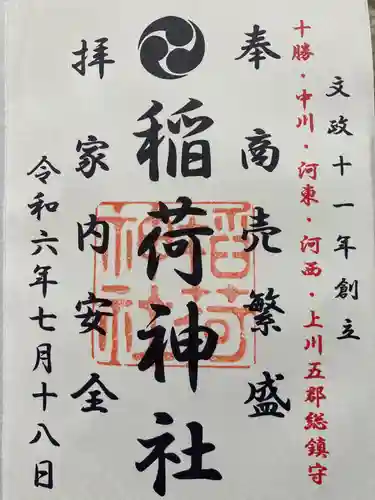 文政十一年創立
十勝・中川・河東・河西・上川五郡総鎮守
奉商売繁盛
稲荷神社
拝家内安全
令和六年七月十八日
稲荷神社